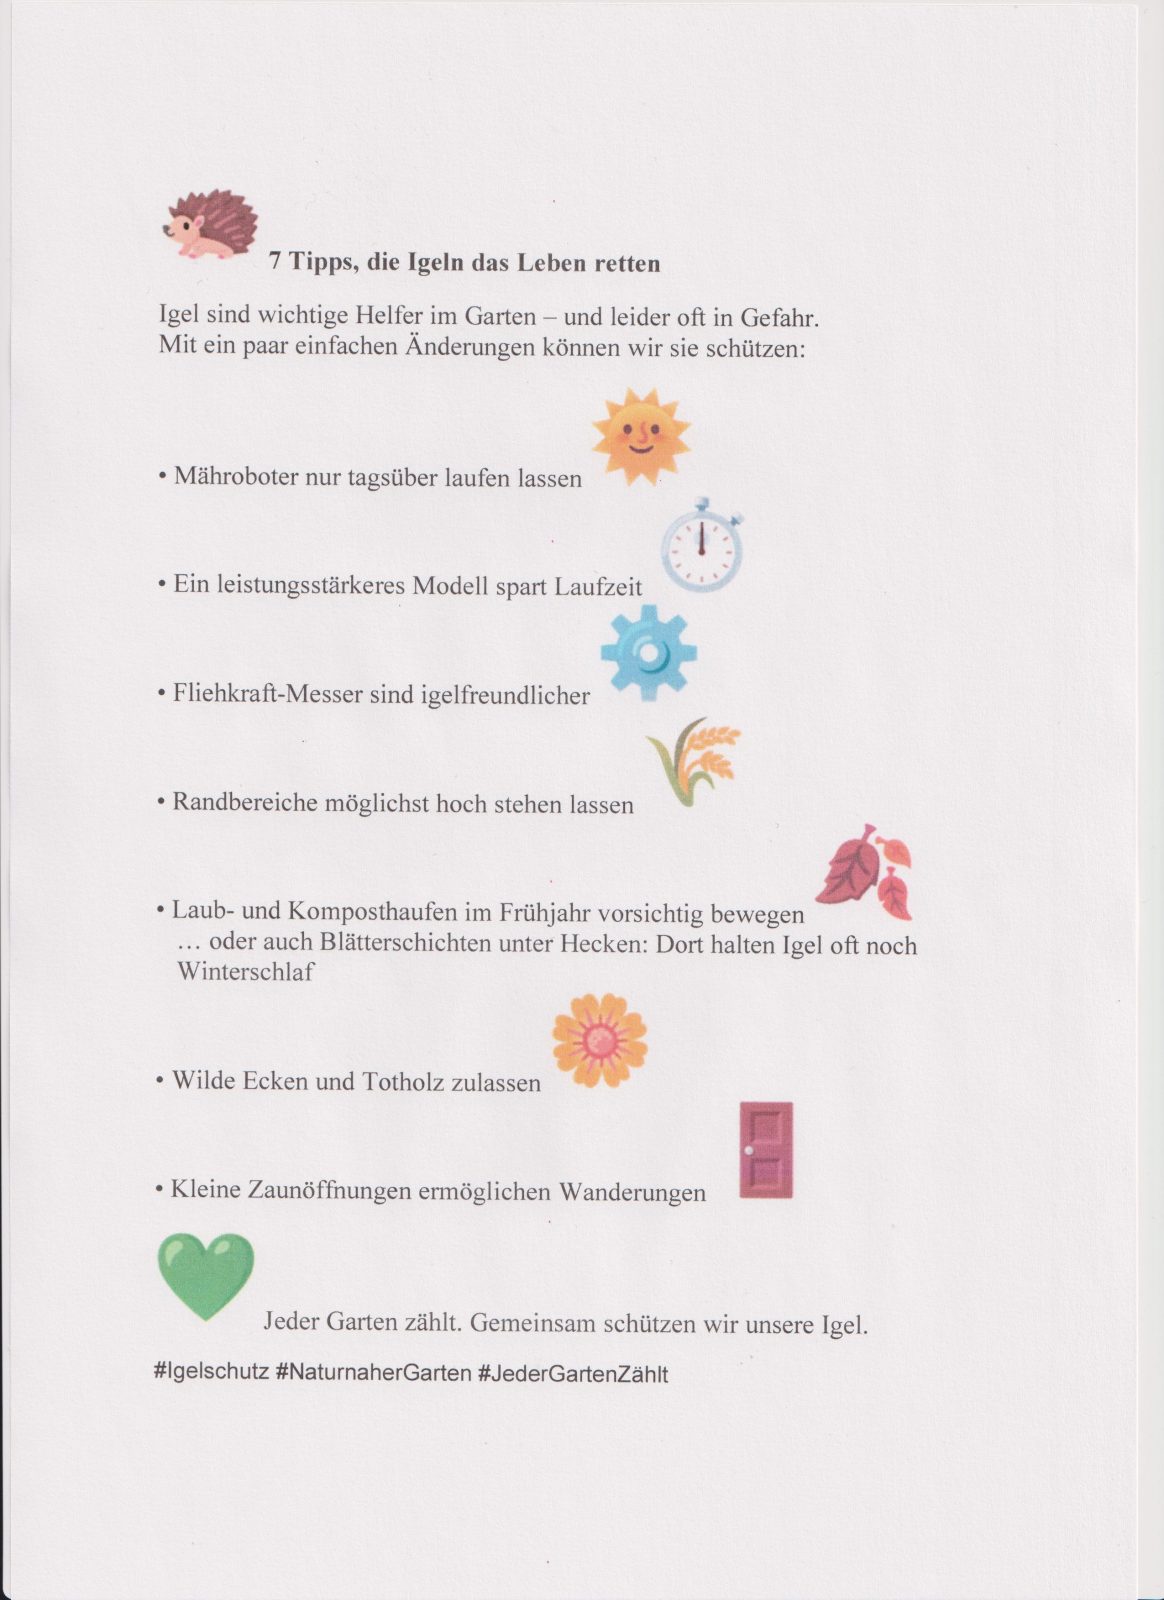 7 Tipps, die Igeln das Leben retten
Igel sind wichtige Helfer im Garten – und leider oft in Gefahr.
Mit ein paar einfachen Änderungen können wir sie schützen:
• Mähroboter nur tagsüber laufen lassen
• Ein leistungsstärkeres Modell spart Laufzeit
• Fliehkraft-Messer sind igelfreundlicher
• Randbereiche möglichst hoch stehen lassen
• Laub- und Komposthaufen im Frühjahr vorsichtig bewegen
… oder auch Blätterschichten unter Hecken: Dort halten Igel oft noch
Winterschlaf
• Wilde Ecken und Totholz zulassen
• Kleine Zaunöffnungen ermöglichen Wanderungen
Jeder Garten zählt. Gemeinsam schützen wir unsere Igel.
#Igelschutz #NaturnaherGarten #JederGartenZählt